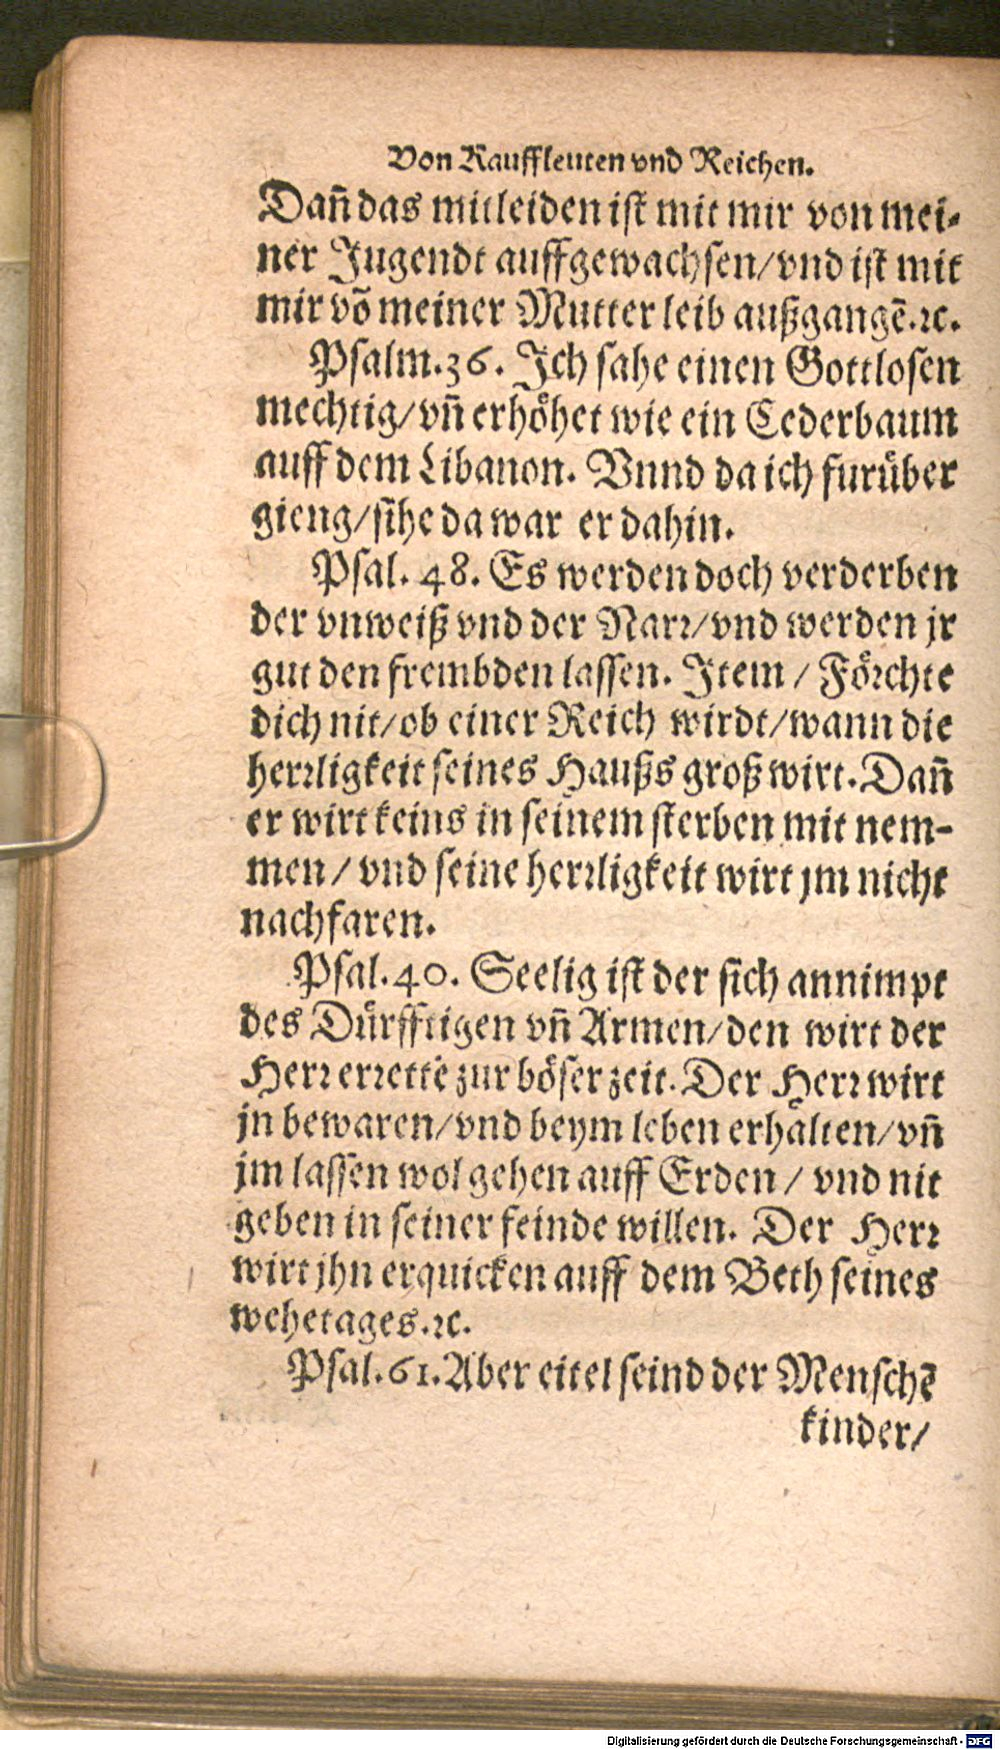 Von Kauffleuten vnd Reichen.
Dañ das mitleiden ist mit mir von mei-
ner Jugendt auffgewachsen/vnd ist mit
mir võ meiner Mutter leib außgangẽ.ꝛc.
Psalm.36. Ich sahe einen Gottlosen
mechtig/vñ erhöhet wie ein Cederbaum
auff dem Libanon. Vnnd da ich furüber
gieng/sihe da war er dahin.
Psal. 48. Es werden doch verderben
der vnweiß vnd der Narꝛ/vnd werden jr
gut den frembden lassen. Item / Föꝛchte
dich nit/ob einer Reich wirdt/wann die
herꝛligkeit seines Haußs groß wirt. Dañ
er wirt keins in seinem sterben mit nem-
men / vnd seine herꝛligkeit wirt jm nicht
nachfaren.
Psal.40. Seelig ist der sich annimpt
des Dürfftigen vñ Armen/den wirt der
Herꝛ erꝛettẽ zur böser zeit. Der Herꝛ wirt
jn bewaren/vnd beym leben erhalten/vñ
jm lassen wol gehen auff Erden / vnd nit
geben in seiner feinde willen. Der Herꝛ
wirt jhn erquicken auff dem Beth seines
wehetages.ꝛc.
Psal.61. Aber eitel seind der Menschẽ
kinder/
Digitalisierung gefördert durch die Deutsche Forschungsgemeinschaft - DFG